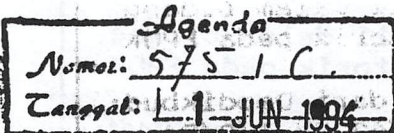 Agenda
Nomor: 575 / C.
Tanggal: 1 JUN 1994